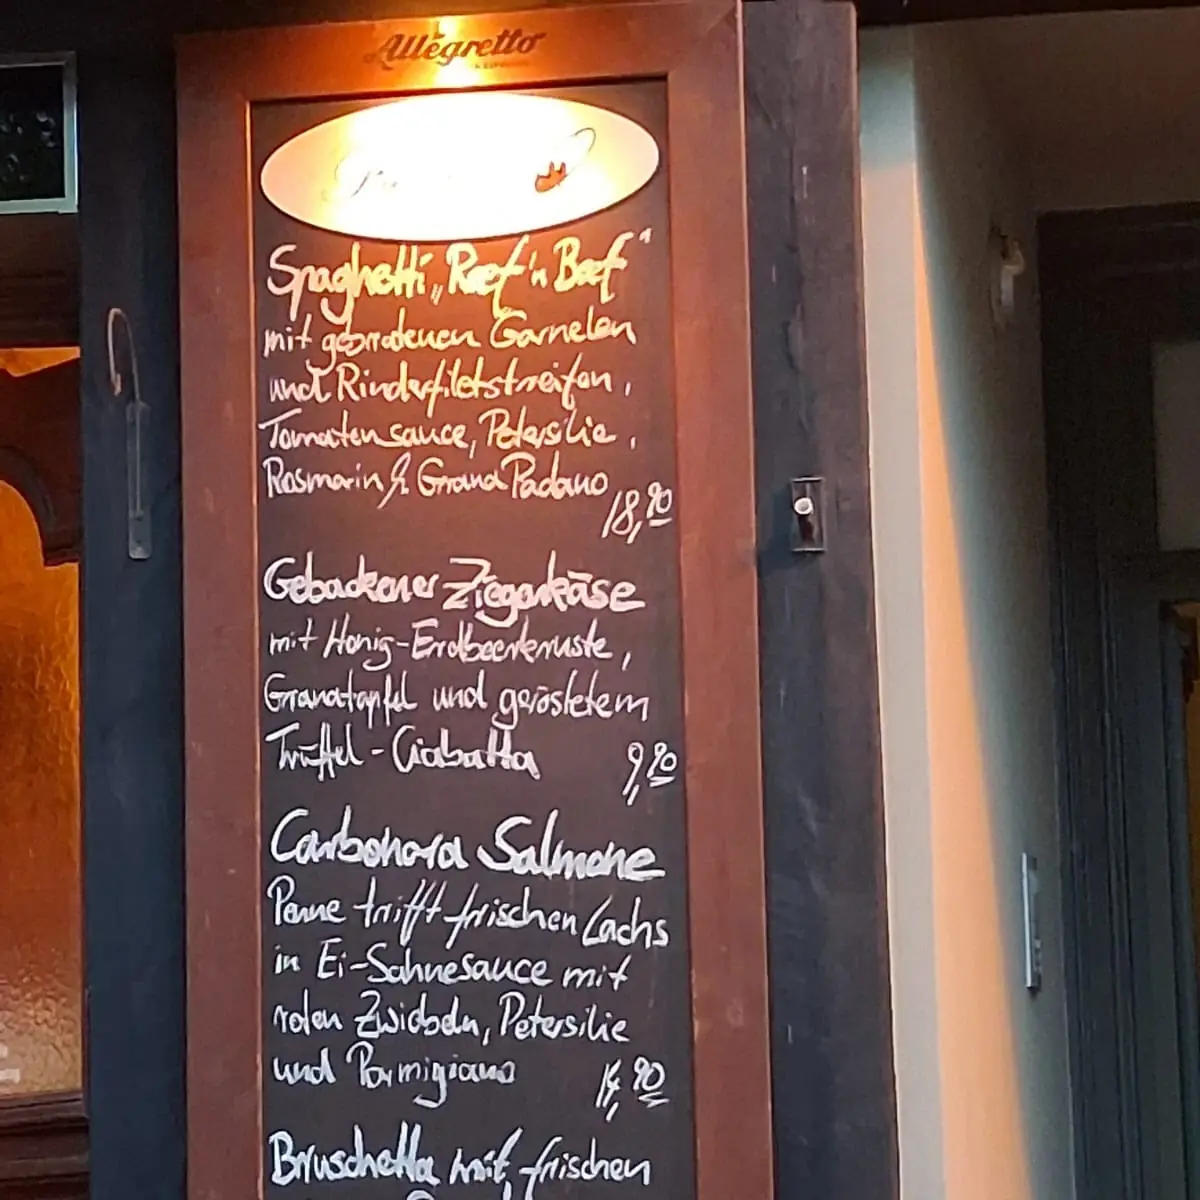 Allegretto
Spaghetti „Reef 'n Beef“
mit gebratenen Garnelen
und Rinderfiletstreifen,
Tomatensauce, Petersilie,
Rosmarin & Grana Padano
18,90
Gebackener Ziegenkäse
mit Honig-Erdbeerkruste,
Granatapfel und geröstetem
Trüffel-Ciabatta
9,90
Carbonara Salmone
Penne trifft frischen Lachs
in Ei-Sahnesauce mit
roten Zwiebeln, Petersilie
und Parmigiano
14,90
Bruschetta mit frischen